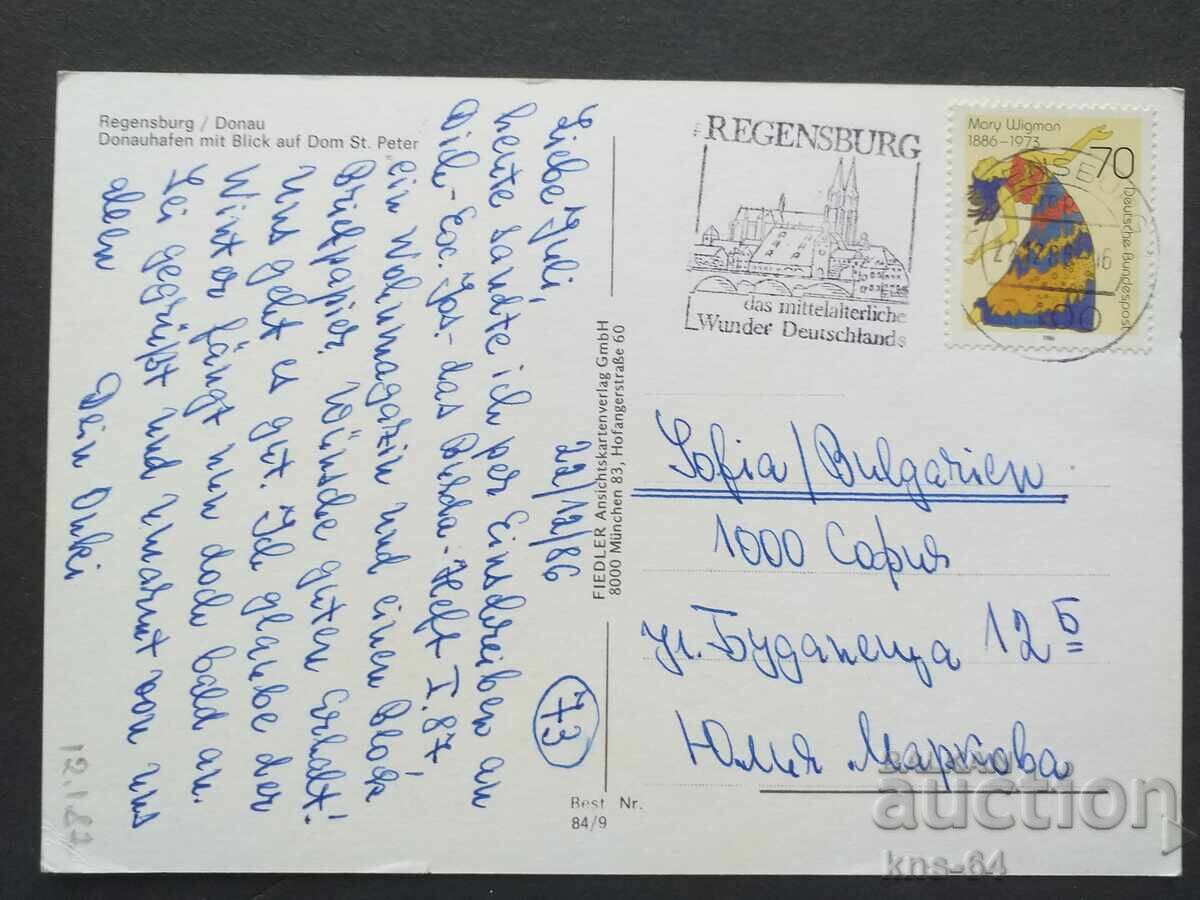 Regensburg / Donau
Donauhafen mit Blick auf Dom St. Peter
22/12/86
Liebe Juli,
heute sandte ich per Einschreiben an
Dich - das Burda-Heft I.87,
ein Wohnmagazin und einen Block
Briefpapier. Wünsche guten Erhalt!
Uns geht es gut. Ich glaube der
Winter fängt nun doch bald an.
Sei gegrüßt und umarmt von uns
allen
Dein Onki
73
12.1.87
FIEDLER Ansichtskartenverlag GmbH
8000 München 83, Hofangerstraße 60
Best Nr.
84/9
REGENSBURG
das mittelalterliche
Wunder Deutschlands
Mary Wigman
1886-1973
70
Deutsche Bundespost
1986
Sofia/Bulgarien
1000 София
ул. Будапеща 12 Б
Юлия Маркова
auction
kns-64